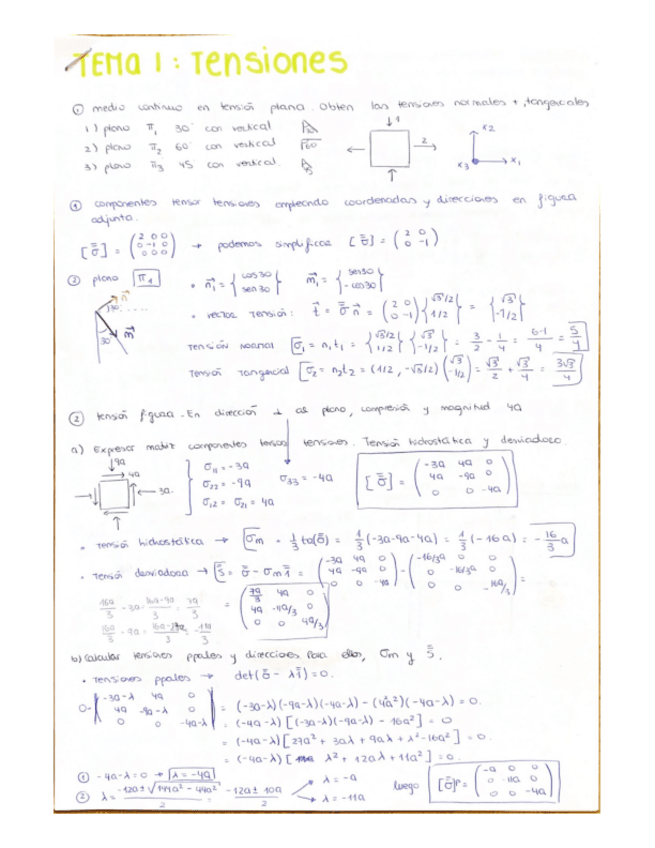 TEMA 1: Tensiones
① medio continuo en tensión plana. Obten las tensiones normales + tangenciales
1) plano π₁ 30° con vertical
2) plano π₂ 60° con vertical
3) plano π₃ 45° con vertical.
1
2
x₂
x₃
x₁
① componentes tensor tensiones empleando coordenadas y direcciones en figura
adjunta.
[σ̿] = (2 0 0; 0 -1 0; 0 0 0) → podemos simplificar [σ̿] = (2 0; 0 -1)
② plano π₁
• n⃗₁ = {cos30; sen30} m⃗₁ = {sen30; -cos30}
• vector tensión: t⃗ = σ̿ n⃗ = (2 0; 0 -1){√3/2; 1/2} = {√3; -1/2}
n⃗
30°
m⃗
30
Tensión normal σ₁ = n₁t₁ = {√3/2; 1/2}{√3; -1/2} = 3/2 - 1/4 = 6-1/4 = 5/4
Tensión tangencial σ₂ = n₂t₂ = (1/2, -√3/2)(√3; -1/2) = √3/2 + √3/4 = 3√3/4
② tensión figura. En dirección ⊥ al plano, compresión y magnitud 4a
a) Expresar matriz componentes tensor tensiones. Tensión hidrostática y desviadora.
9a
4a
3a
σ₁₁ = -3a
σ₂₂ = -9a
σ₁₂ = σ₂₁ = 4a
σ₃₃ = -4a
[σ̿] = (-3a 4a 0; 4a -9a 0; 0 0 -4a)
• Tensión hidrostática → σm = 1/3 tr(σ̿) = 1/3 (-3a-9a-4a) = 1/3 (-16a) = -16/3 a
• Tensión desviadora → s̿ = σ̿ - σm 1̿ = (-3a 4a 0; 4a -9a 0; 0 0 -4a) - (-16/3a 0 0; 0 -16/3a 0; 0 0 -16a/3) =
16a/3 - 3a = 16a-9a/3 = 7a/3
16a/3 - 9a = 16a-27a/3 = -11a/3
= (7a/3 4a 0; 4a -11a/3 0; 0 0 4a/3)
b) Calcular tensiones ppales y direcciones para ellos, σm y s̿.
• Tensiones ppales → det(σ̿ - λ1̿) = 0.
0 = |-3a-λ 4a 0; 4a -9a-λ 0; 0 0 -4a-λ| = (-3a-λ)(-9a-λ)(-4a-λ) - (4²a²)(-4a-λ) = 0.
= (-4a-λ)[(-3a-λ)(-9a-λ) - 16a²] = 0
= (-4a-λ)[27a² + 3aλ + 9aλ + λ² - 16a²] = 0.
= (-4a-λ)[λ² + 12aλ + 11a²] = 0.
① -4a-λ = 0 → λ = -4a
② λ = -12a ± √144a² - 44a² / 2 = -12a ± 10a / 2
λ = -a
λ = -11a
luego [σ̿]ᵖ = (-a 0 0; 0 -11a 0; 0 0 -4a)